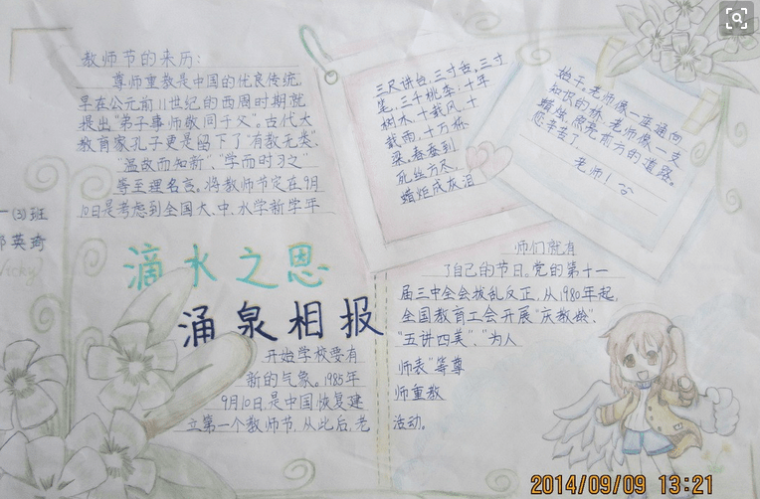 教师节的来历:
尊师重教是中国的优良传统,
早在公元前11世纪的西周时期就
提出"弟子事师,敬同于父"。古代大
教育家孔子更是留下了"有教无类",
"温故而知新","学而时习之"
等至理名言。将教师节定在9月
10日是考虑到全国大、中、小学新学年
三尺讲台,三寸舌,三寸
笔,三千桃李;十年
树木,十载风,十
载雨,十万栋
梁。春蚕到
死丝方尽,
蜡炬成灰泪
老师像一座通向
知识的桥,老师像一支
蜡烛,照亮前方的道路。
您辛苦了
老师!
一(3)班
英琦
Vicky
滴水之恩
涌泉相报
开始学校要有
新的气象。1985年
9月10日,是中国恢复建
立第一个教师节,从此后,老
师们就有
了自己的节日。党的第十一
届三中全会拨乱反正,从1980年起,
全国教育工会开展"庆教龄",
"五讲四美","为人
师表"等尊
师重教
活动。
2014/09/09 13:21